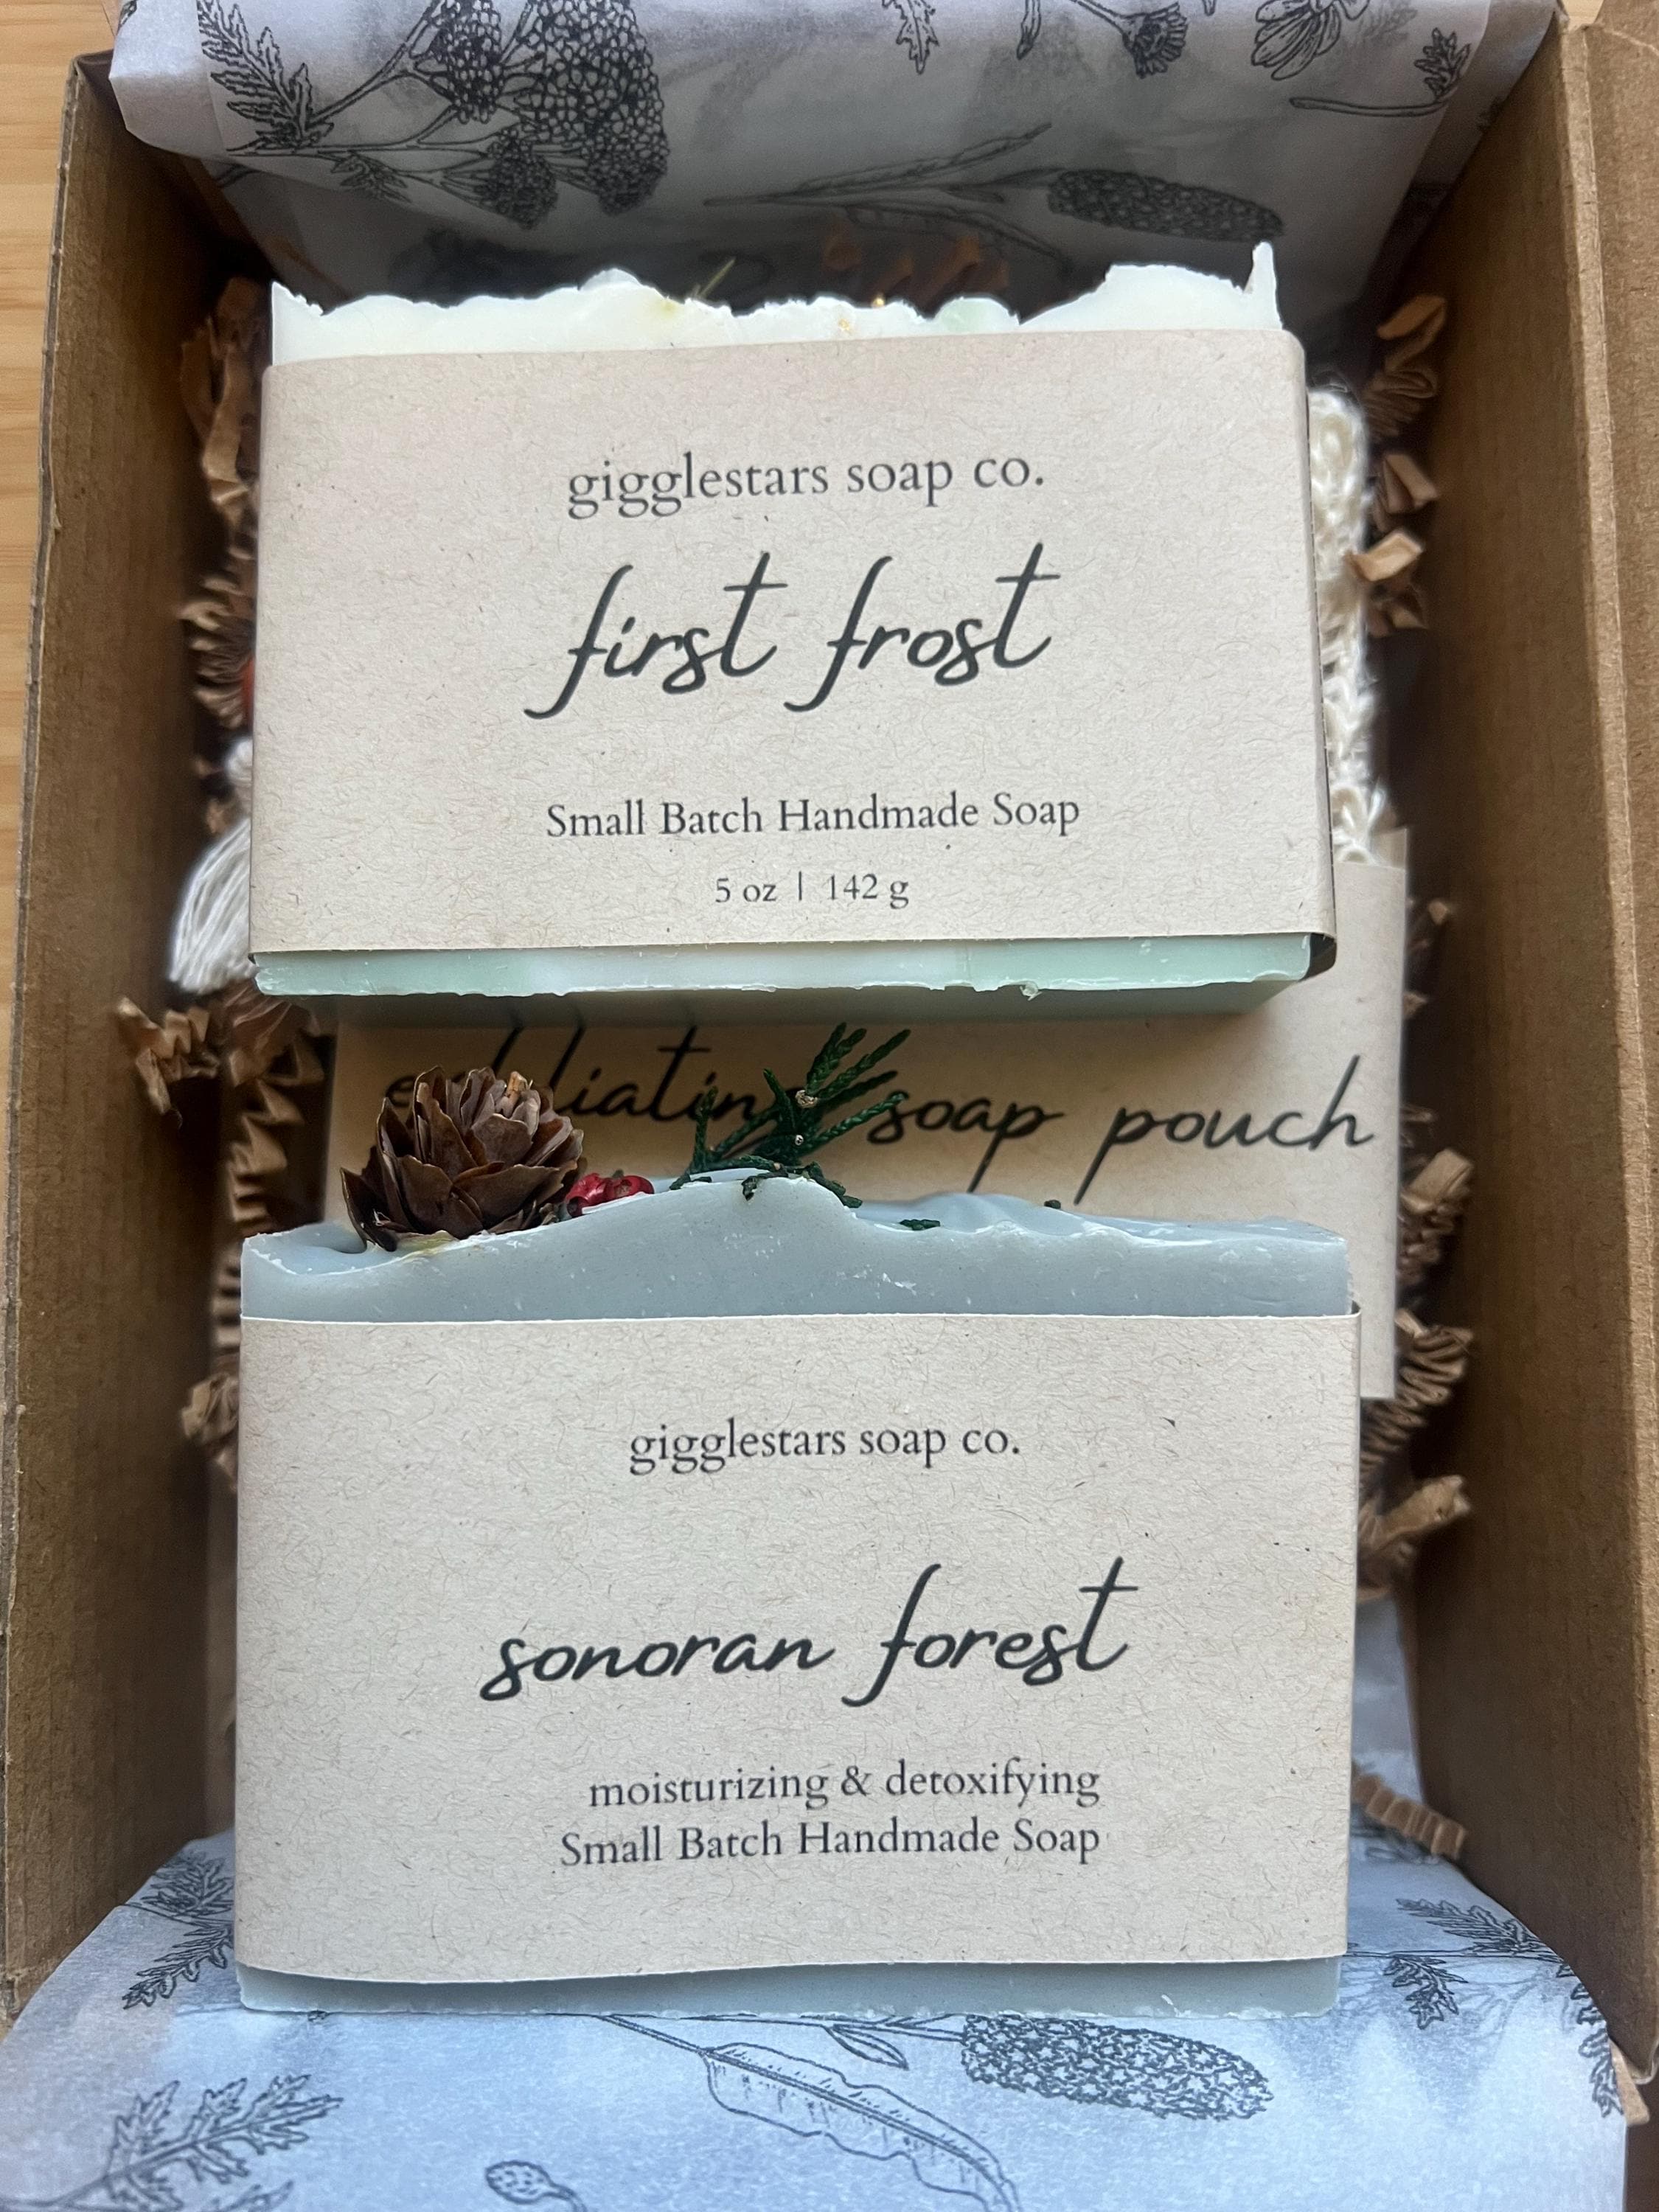 gigglestars soap co.
first frost
Small Batch Handmade Soap
5 oz | 142 g
exfoliating soap pouch
gigglestars soap co.
sonoran forest
moisturizing & detoxifying
Small Batch Handmade Soap